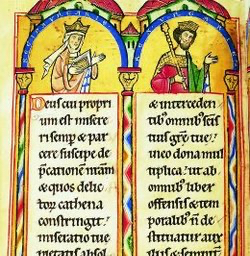 Deus cui propri
um est misere
ri semp & par
cere suscipe de
p̄cationem nr̄am
& quos delic
torꝝ cathena
constringit
miseratio tue
pietatis absol
& interceden
tibꝰ omnibꝰ scis
tuis grē tue
meo dona mul
tiplica. ut ab
omnibꝰ liber
offensis & tem
poralibꝰ n̄ de
stituatur aux
iliis & sempit